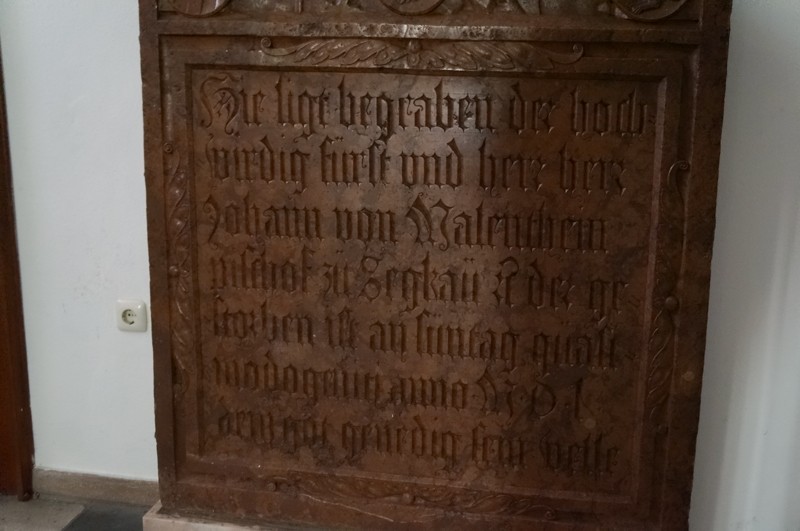 Hie ligt begraben der hoch
wirdig fürst vnd herr herr
Johann von Malenthein
pischof zü Segkaü &c der ge
storben ist an süntag quasi
modogeniti anno M D L
dem got genedig sein welle